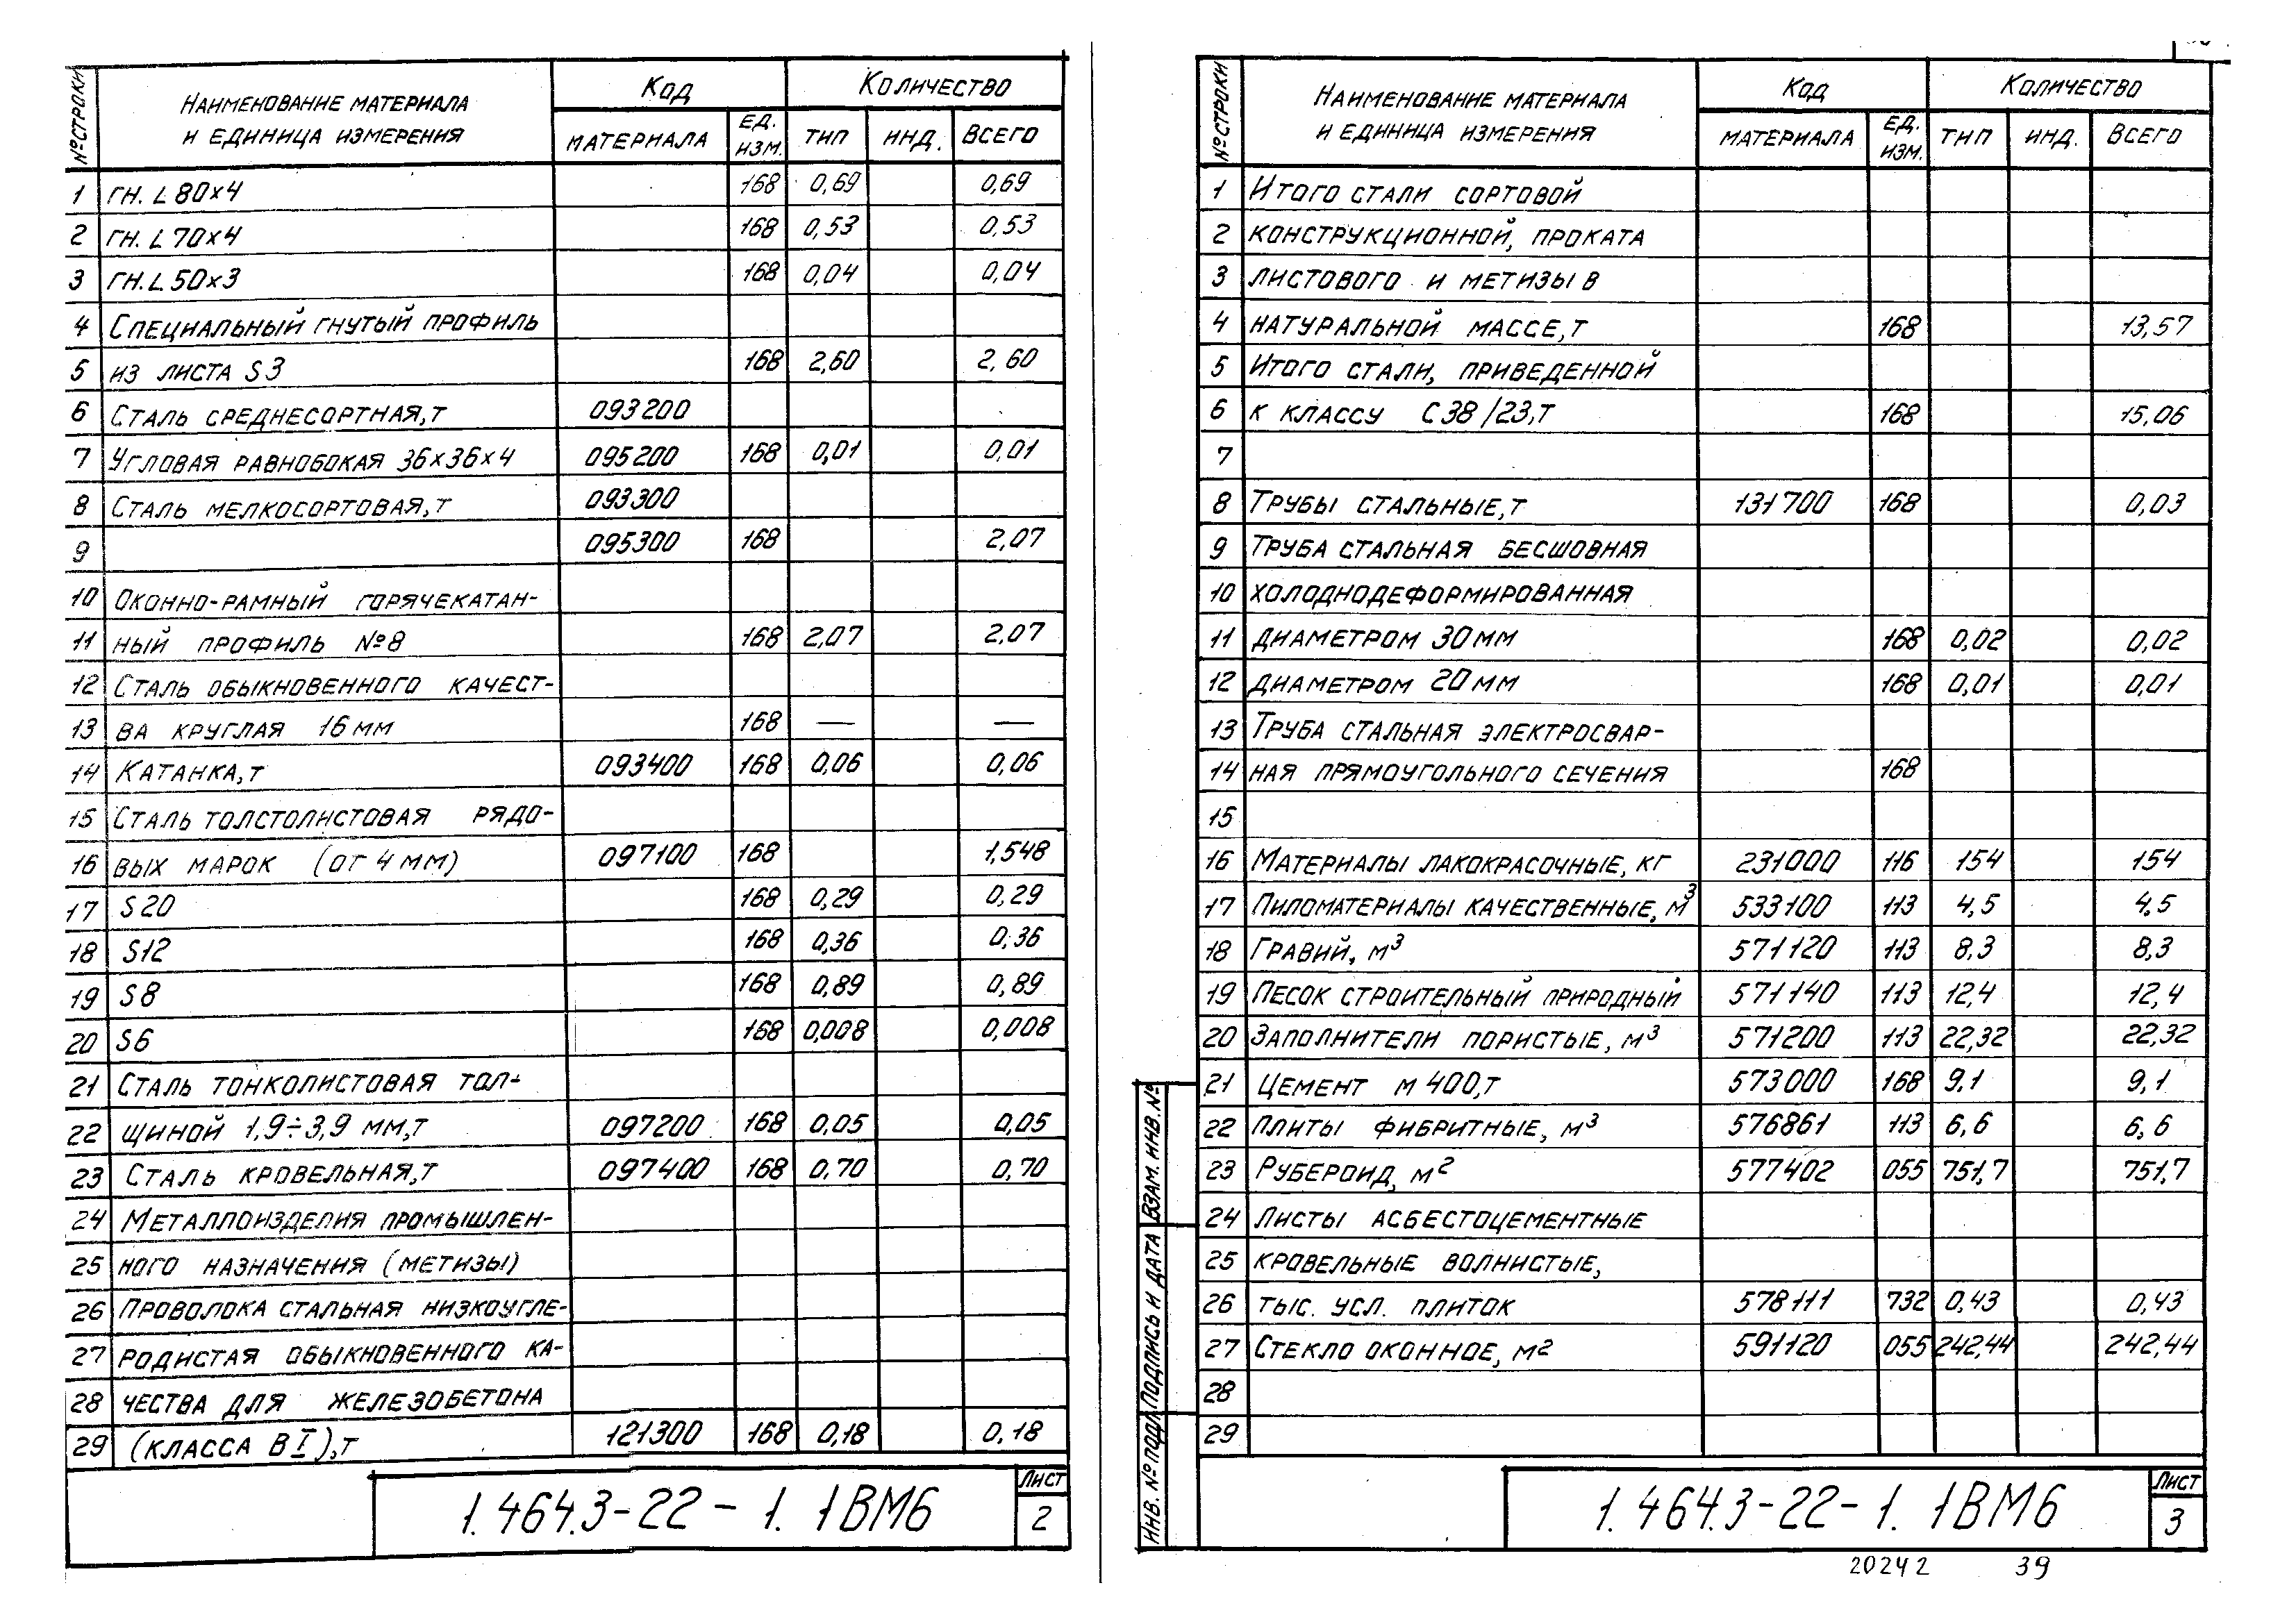 № СТРОКИ
НАИМЕНОВАНИЕ МАТЕРИАЛА
И ЕДИНИЦА ИЗМЕРЕНИЯ
Код
Количество
МАТЕРИАЛА
ЕД. ИЗМ.
ТИП
ИНД.
ВСЕГО
1 ГН. L 80×4 168 0,69 0,69
2 ГН. L 70×4 168 0,53 0,53
3 ГН. L 50×3 168 0,04 0,04
4 СПЕЦИАЛЬНЫЙ ГНУТЫЙ ПРОФИЛЬ
5 ИЗ ЛИСТА S3 168 2,60 2,60
6 СТАЛЬ СРЕДНЕСОРТНАЯ,Т 093200
7 УГЛОВАЯ РАВНОБОКАЯ 36×36×4 095200 168 0,01 0,01
8 СТАЛЬ МЕЛКОСОРТОВАЯ,Т 093300
9 095300 168 2,07
10 ОКОННО-РАМНЫЙ ГОРЯЧЕКАТАН-
11 НЫЙ ПРОФИЛЬ №8 168 2,07 2,07
12 СТАЛЬ ОБЫКНОВЕННОГО КАЧЕСТ-
13 ВА КРУГЛАЯ 16 ММ 168 — —
14 КАТАНКА,Т 093400 168 0,06 0,06
15 СТАЛЬ ТОЛСТОЛИСТОВАЯ РЯДО-
16 ВЫХ МАРОК (ОТ 4 ММ) 097100 168 1,548
17 S20 168 0,29 0,29
18 S12 168 0,36 0,36
19 S8 168 0,89 0,89
20 S6 168 0,008 0,008
21 СТАЛЬ ТОНКОЛИСТОВАЯ ТОЛ-
22 ЩИНОЙ 1,9÷3,9 ММ,Т 097200 168 0,05 0,05
23 СТАЛЬ КРОВЕЛЬНАЯ,Т 097400 168 0,70 0,70
24 МЕТАЛЛОИЗДЕЛИЯ ПРОМЫШЛЕН-
25 НОГО НАЗНАЧЕНИЯ (МЕТИЗЫ)
26 ПРОВОЛОКА СТАЛЬНАЯ НИЗКОУГЛЕ-
27 РОДИСТАЯ ОБЫКНОВЕННОГО КА-
28 ЧЕСТВА ДЛЯ ЖЕЛЕЗОБЕТОНА
29 (КЛАССА ВI),Т 121300 168 0,18 0,18
1.464.3-22-1. 1ВМ6
ЛИСТ
2
№ СТРОКИ
НАИМЕНОВАНИЕ МАТЕРИАЛА
И ЕДИНИЦА ИЗМЕРЕНИЯ
Код
Количество
МАТЕРИАЛА
ЕД. ИЗМ.
ТИП
ИНД.
ВСЕГО
1 ИТОГО СТАЛИ СОРТОВОЙ
2 КОНСТРУКЦИОННОЙ, ПРОКАТА
3 ЛИСТОВОГО И МЕТИЗЫ В
4 НАТУРАЛЬНОЙ МАССЕ,Т 168 13,57
5 ИТОГО СТАЛИ, ПРИВЕДЕННОЙ
6 К КЛАССУ С38/23,Т 168 15,06
7
8 ТРУБЫ СТАЛЬНЫЕ,Т 131700 168 0,03
9 ТРУБА СТАЛЬНАЯ БЕСШОВНАЯ
10 ХОЛОДНОДЕФОРМИРОВАННАЯ
11 ДИАМЕТРОМ 30 ММ 168 0,02 0,02
12 ДИАМЕТРОМ 20 ММ 168 0,01 0,01
13 ТРУБА СТАЛЬНАЯ ЭЛЕКТРОСВАР-
14 НАЯ ПРЯМОУГОЛЬНОГО СЕЧЕНИЯ 168
15
16 МАТЕРИАЛЫ ЛАКОКРАСОЧНЫЕ, КГ 231000 116 154 154
17 ПИЛОМАТЕРИАЛЫ КАЧЕСТВЕННЫЕ, М³ 533100 113 4,5 4,5
18 ГРАВИЙ, М³ 571120 113 8,3 8,3
19 ПЕСОК СТРОИТЕЛЬНЫЙ ПРИРОДНЫЙ 571140 113 12,4 12,4
20 ЗАПОЛНИТЕЛИ ПОРИСТЫЕ, М³ 571200 113 22,32 22,32
21 ЦЕМЕНТ М 400,Т 573000 168 9,1 9,1
22 ПЛИТЫ ФИБРИТНЫЕ, М³ 576861 113 6,6 6,6
23 РУБЕРОИД, М² 577402 055 751,7 751,7
24 ЛИСТЫ АСБЕСТОЦЕМЕНТНЫЕ
25 КРОВЕЛЬНЫЕ ВОЛНИСТЫЕ,
26 ТЫС. УСЛ. ПЛИТОК 578111 732 0,43 0,43
27 СТЕКЛО ОКОННОЕ, М² 591120 055 242,44 242,44
28
29
ИНВ. № ПОДЛ. ПОДПИСЬ И ДАТА ВЗАМ. ИНВ. №
1.464.3-22-1. 1ВМ6
ЛИСТ
3
20242 39